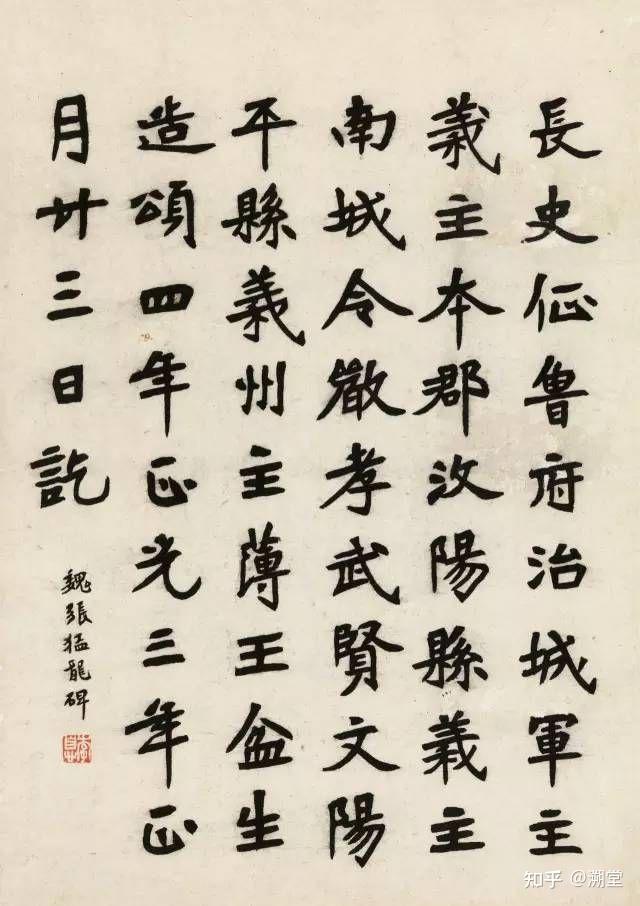 長史征魯府治城軍主
義主本郡汶陽縣義主
南城令嚴孝武賢文陽
平縣義州主薄王盆生
造頌四年正光三年正
月廿三日訖
魏張猛龍碑
知乎 @溯堂